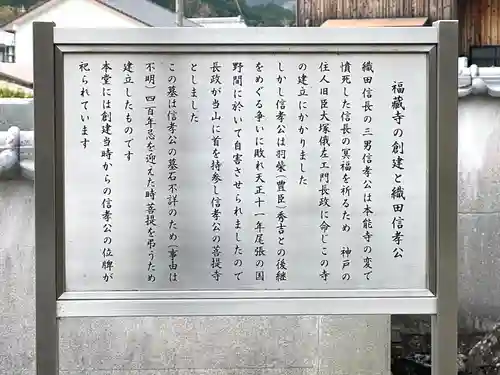 福蔵寺の創建と織田信孝公
織田信長の三男信孝公は本能寺の変で
憤死した信長の冥福を祈るため 神戸の
住人旧臣大塚俄左エ門長政に命じこの寺
の建立にかかりました
しかし信孝公は羽柴(豊臣)秀吉との後継
をめぐる争いに敗れ天正十一年尾張の国
野間に於いて自害させられましたので
長政が当山に首を持参し信孝公の菩提寺
としました
この墓は信孝公の墓石不詳のため(事由は
不明)四百年忌を迎えた時菩提を弔うため
建立したものです
本堂には創建当時からの信孝公の位牌が
祀られています